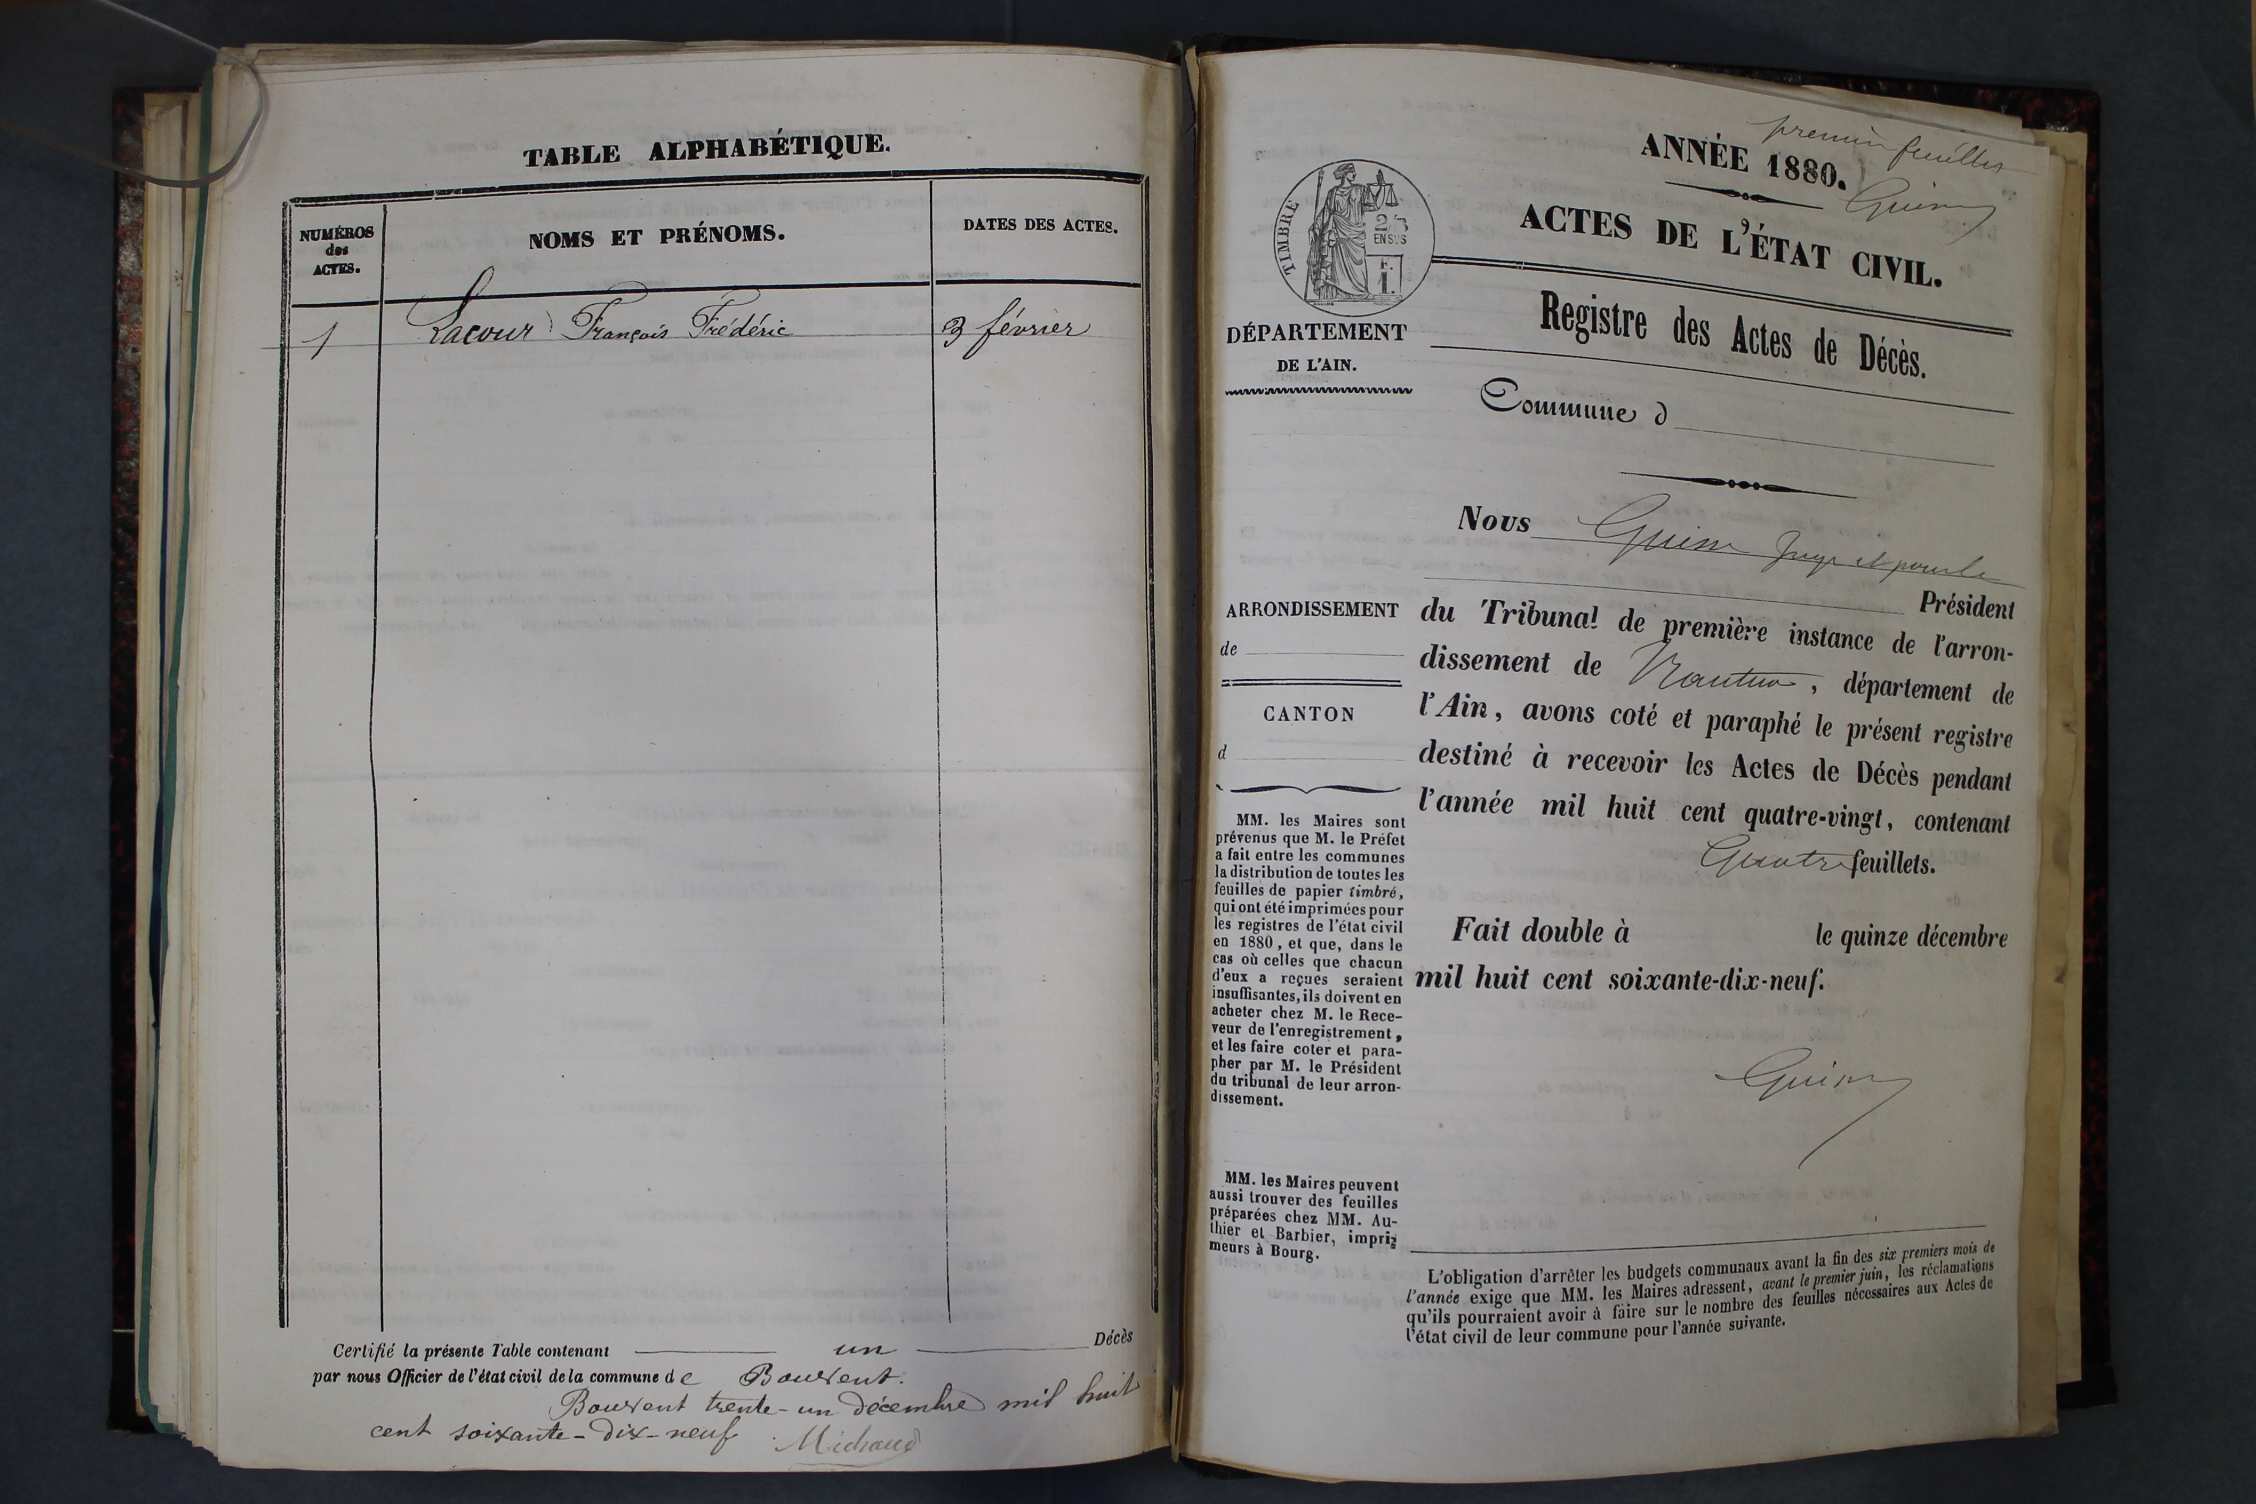 TABLE ALPHABÉTIQUE.
NUMÉROS
des
ACTES.
NOMS ET PRÉNOMS.
DATES DES ACTES.
1 Lacour François Frédéric 3 février
Certifié la présente Table contenant un Décès
par nous Officier de l'état civil de la commune de Bouvent.
Bouvent trente-un décembre mil huit
cent soixante-dix-neuf Michaud
premier feuillet
ANNÉE 1880.
ACTES DE L'ÉTAT CIVIL.
TIMBRE
EN SUS
Registre des Actes de Décès.
DÉPARTEMENT
DE L'AIN.
Commune d
Nous Juge et pour le
Président
du Tribunal de première instance de l'arron-
dissement de Nantua, département de
l'Ain, avons coté et paraphé le présent registre
destiné à recevoir les Actes de Décès pendant
l'année mil huit cent quatre-vingt, contenant
Quatre feuillets.
Fait double à le quinze décembre
mil huit cent soixante-dix-neuf.
ARRONDISSEMENT
de
CANTON
d
MM. les Maires sont
prévenus que M. le Préfet
a fait entre les communes
la distribution de toutes les
feuilles de papier timbré,
qui ont été imprimées pour
les registres de l'état civil
en 1880, et que, dans le
cas où celles que chacun
d'eux a reçues seraient
insuffisantes, ils doivent en
acheter chez M. le Rece-
veur de l'enregistrement,
et les faire coter et para-
pher par M. le Président
du tribunal de leur arron-
dissement.
MM. les Maires peuvent
aussi trouver des feuilles
préparées chez MM. Au-
thier et Barbier, impri-
meurs à Bourg.
L'obligation d'arrêter les budgets communaux avant la fin des six premiers mois de
l'année exige que MM. les Maires adressent, avant le premier juin, les réclamations
qu'ils pourraient avoir à faire sur le nombre des feuilles nécessaires aux Actes de
l'état civil de leur commune pour l'année suivante.